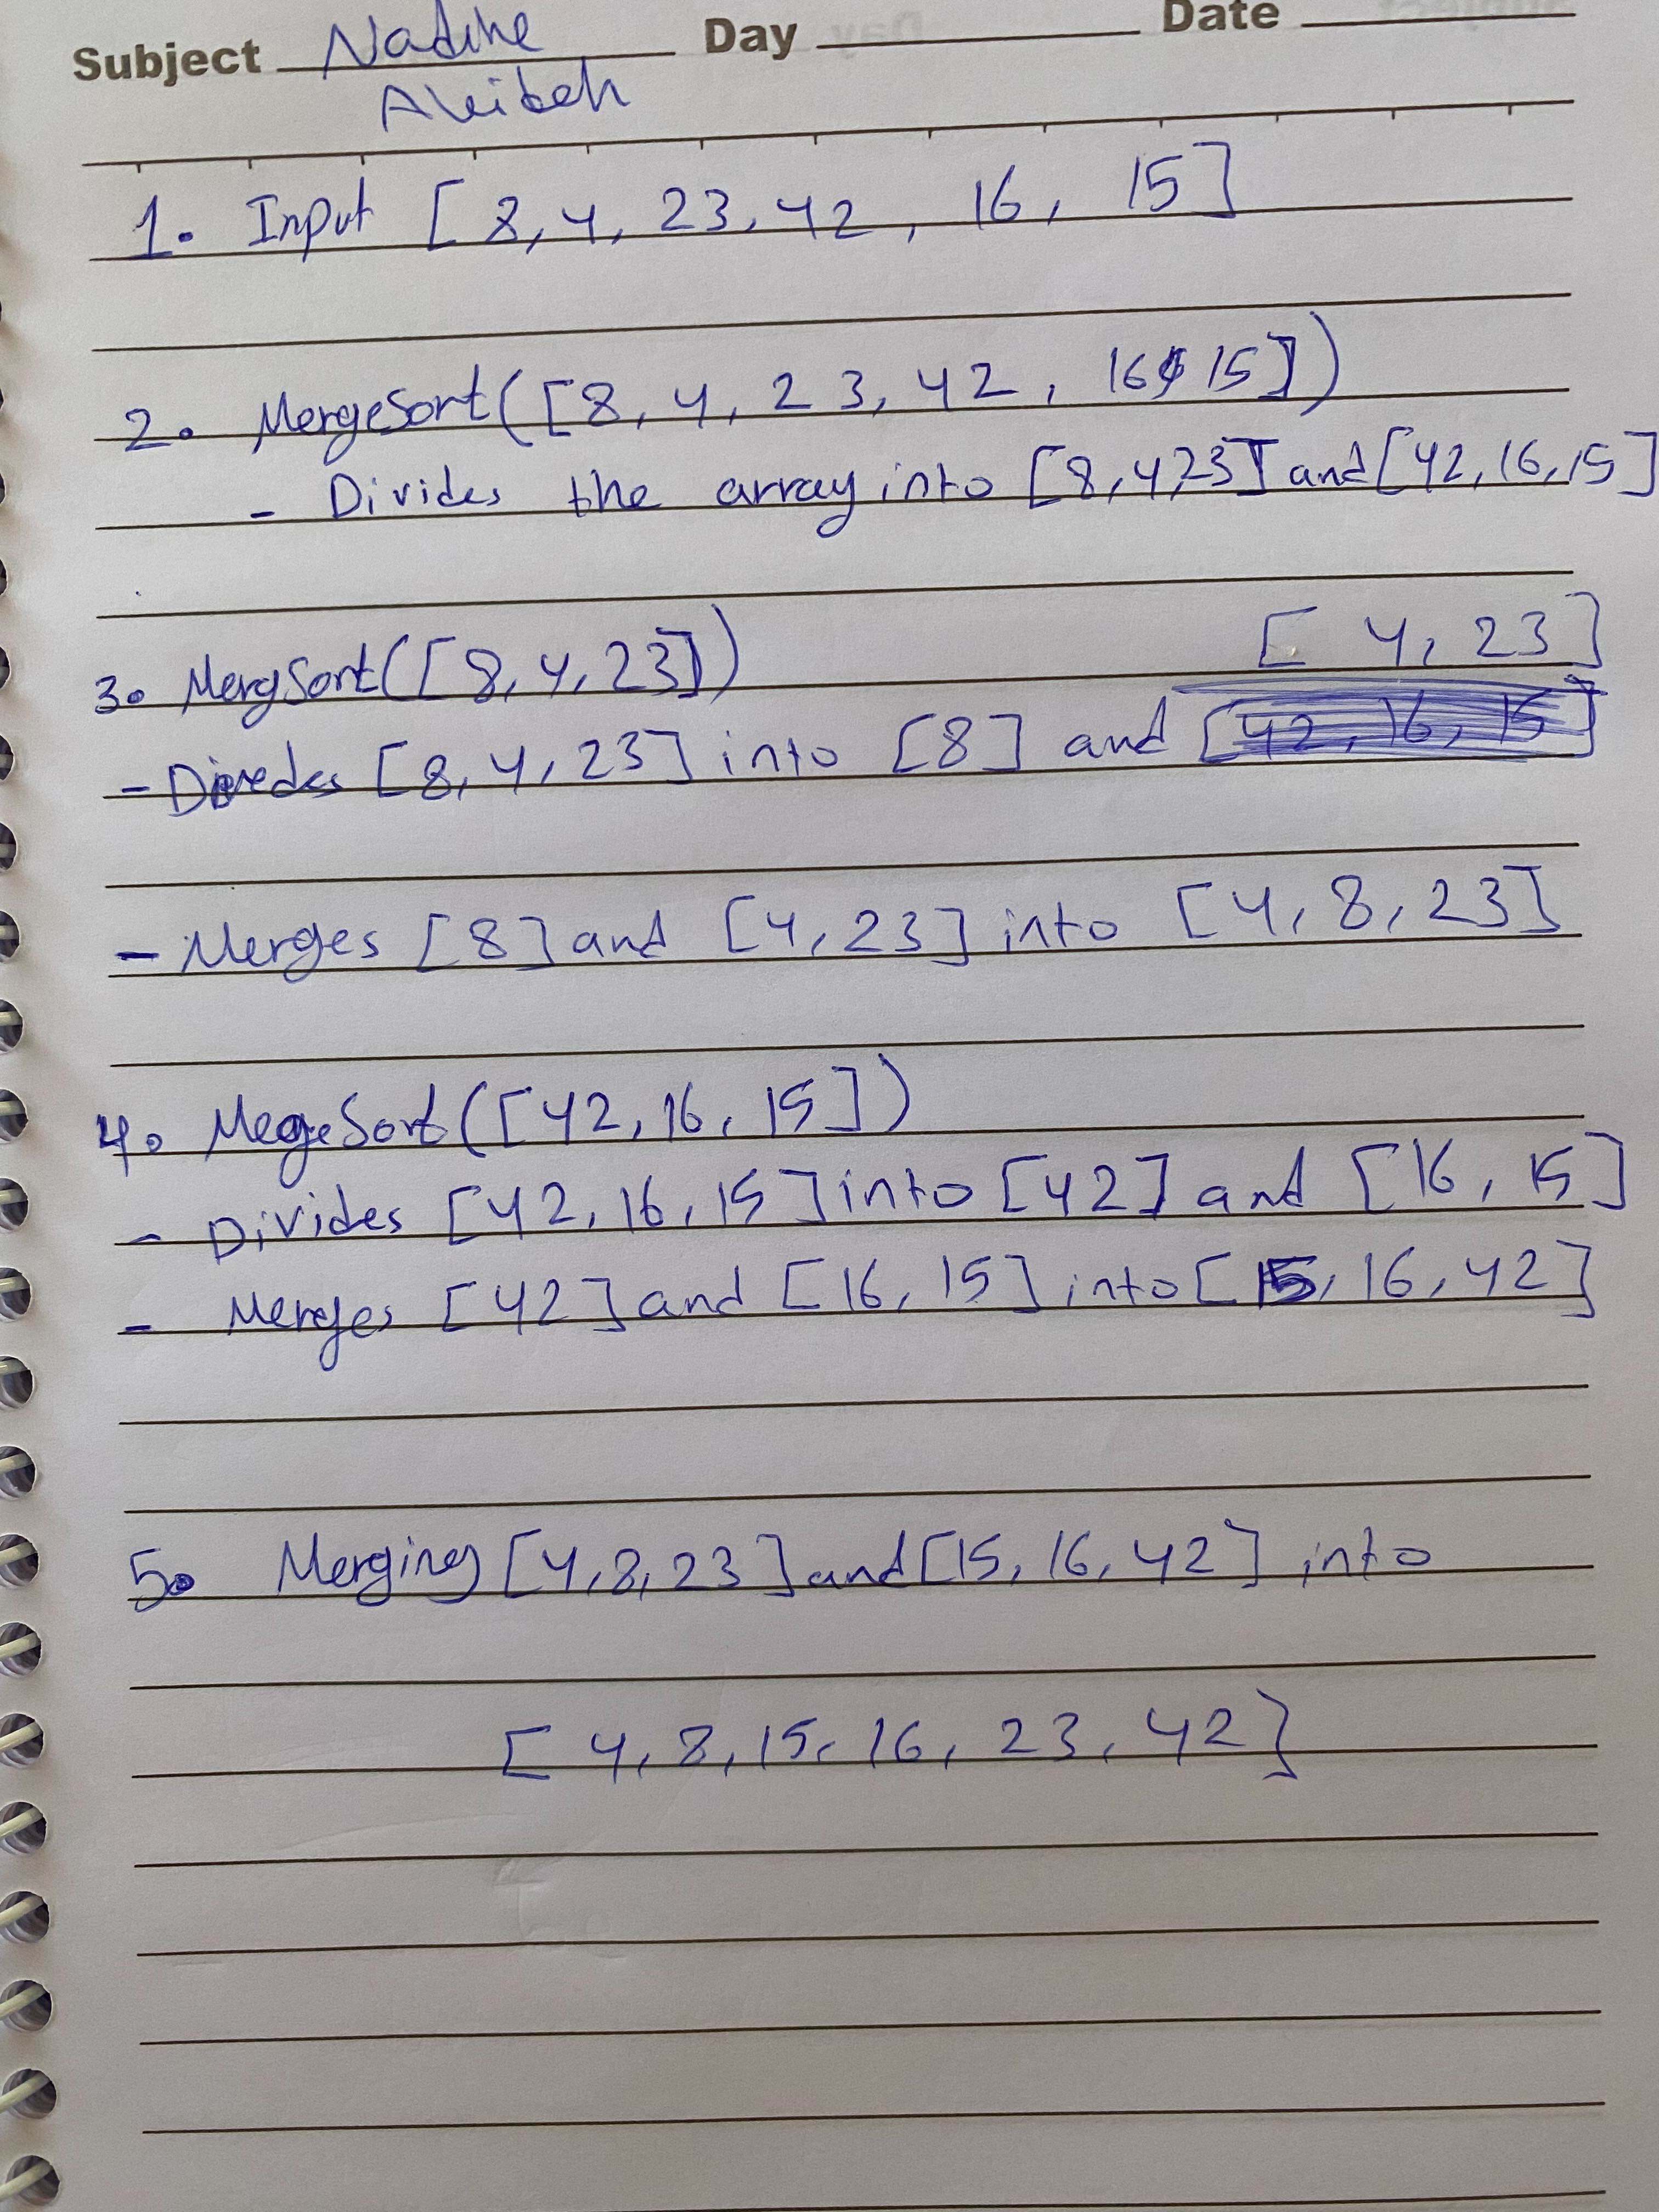 Subject Nadine Day Date
1. Input [8, 4, 23, 42, 16, 15]
2. MergeSort([8, 4, 23, 42, 16, 15])
- Divides the array into [8,4,23] and [42,16,15]
3. MergSort([8,4,23])
[4, 23]
- Divedes [8, 4, 23] into [8] and [42, 16, 15]
- Merges [8] and [4, 23] into [4, 8, 23]
4. MegeSort([42, 16, 15])
- Divides [42, 16, 15] into [42] and [16, 15]
- Merges [42] and [16, 15] into [15, 16, 42]
5. Merging [4,8,23] and [15, 16, 42] into
[4, 8, 15, 16, 23, 42]